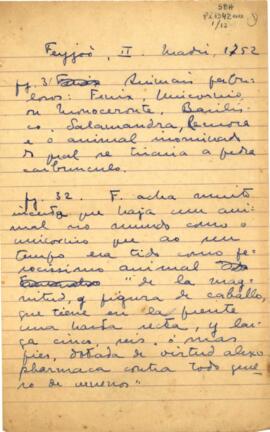 SBH
Pi 1342
1/12
Feyjoó, II. Madri, 1752
pg. 3 Animais fabu-
losos: Fenix, Unicornio,
ou Monoceronte, Basilis-
co, Salamandra, Remora
e o animal inominado
do qual se tiraria a pedra
carbunculo.
pg. 32. F. acha muito
incerto que haja um ani-
mal no mundo como o
unicornio que ao seu
tempo era tido como fe-
rocissimo animal
"de la mag-
nitud, y figura de caballo,
que tiene en la frente
una hasta recta, y lar-
ga cinco, seis, ó mas
pies, dotada de virtud alexi-
pharmaca contra todo gene-
ro de venenos"